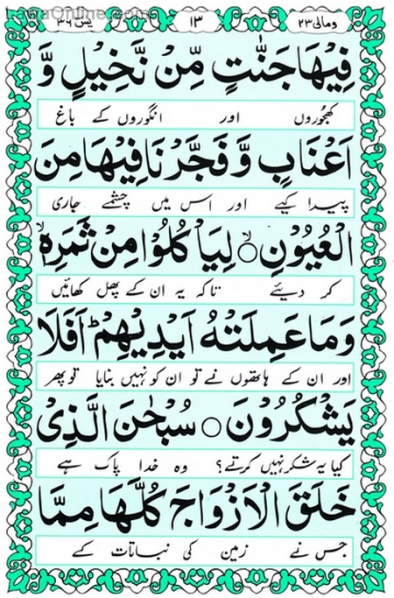 ومالی ۲۳ ۱۳ یٰسٓ ۳۶
فِيْهَا جَنّٰتٍ مِّنْ نَّخِيْلٍ وَّ
کھجوروں اور انگوروں کے باغ
اَعْنَابٍ وَّ فَجَّرْنَا فِيْهَا مِنَ
پیدا کیے اور اس میں چشمے جاری
الْعُيُوْنِ ۙ لِيَاْكُلُوْا مِنْ ثَمَرِهٖ ۙ
کر دیئے تاکہ یہ ان کے پھل کھائیں
وَمَا عَمِلَتْهُ اَيْدِيْهِمْ ؕ اَفَلَا
اور ان کے ہاتھوں نے تو ان کو نہیں بنایا تو پھر
يَشْكُرُوْنَ ○ سُبْحٰنَ الَّذِیْ
کیا یہ شکر نہیں کرتے؟ وہ خدا پاک ہے
خَلَقَ الْاَزْوَاجَ كُلَّهَا مِمَّا
جس نے زمین کی نباتات کے